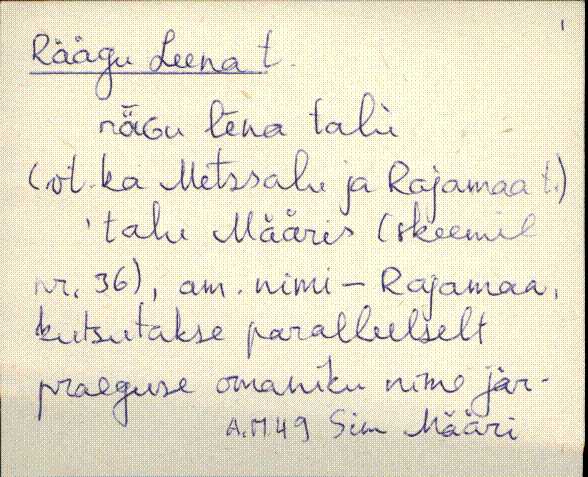 1
Räägu Leena t.
rǟGu lēna talu
(vt. ka Metssalu ja Rajamaa t.)
'talu Määris (skeemil
nr. 36), am. nimi – Rajamaa,
kutsutakse paralleelselt
praeguse omaniku nime jär-
A.M 49 Sim Määri